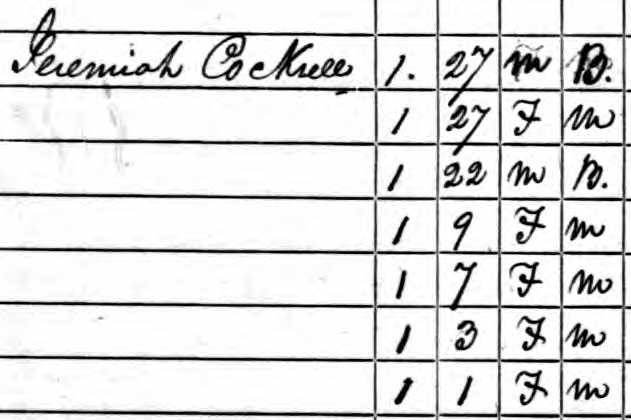 Jeremiah Cockrell 1. 27 m B.
1 27 F m
1 22 m B.
1 9 F m
1 7 F m
1 3 F m
1 1 F m